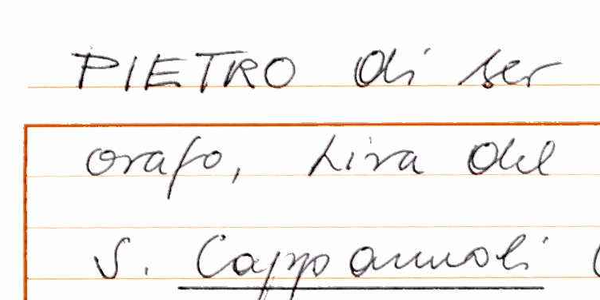 PIETRO di ser
orafo, Lira del
S. Cappannoli (